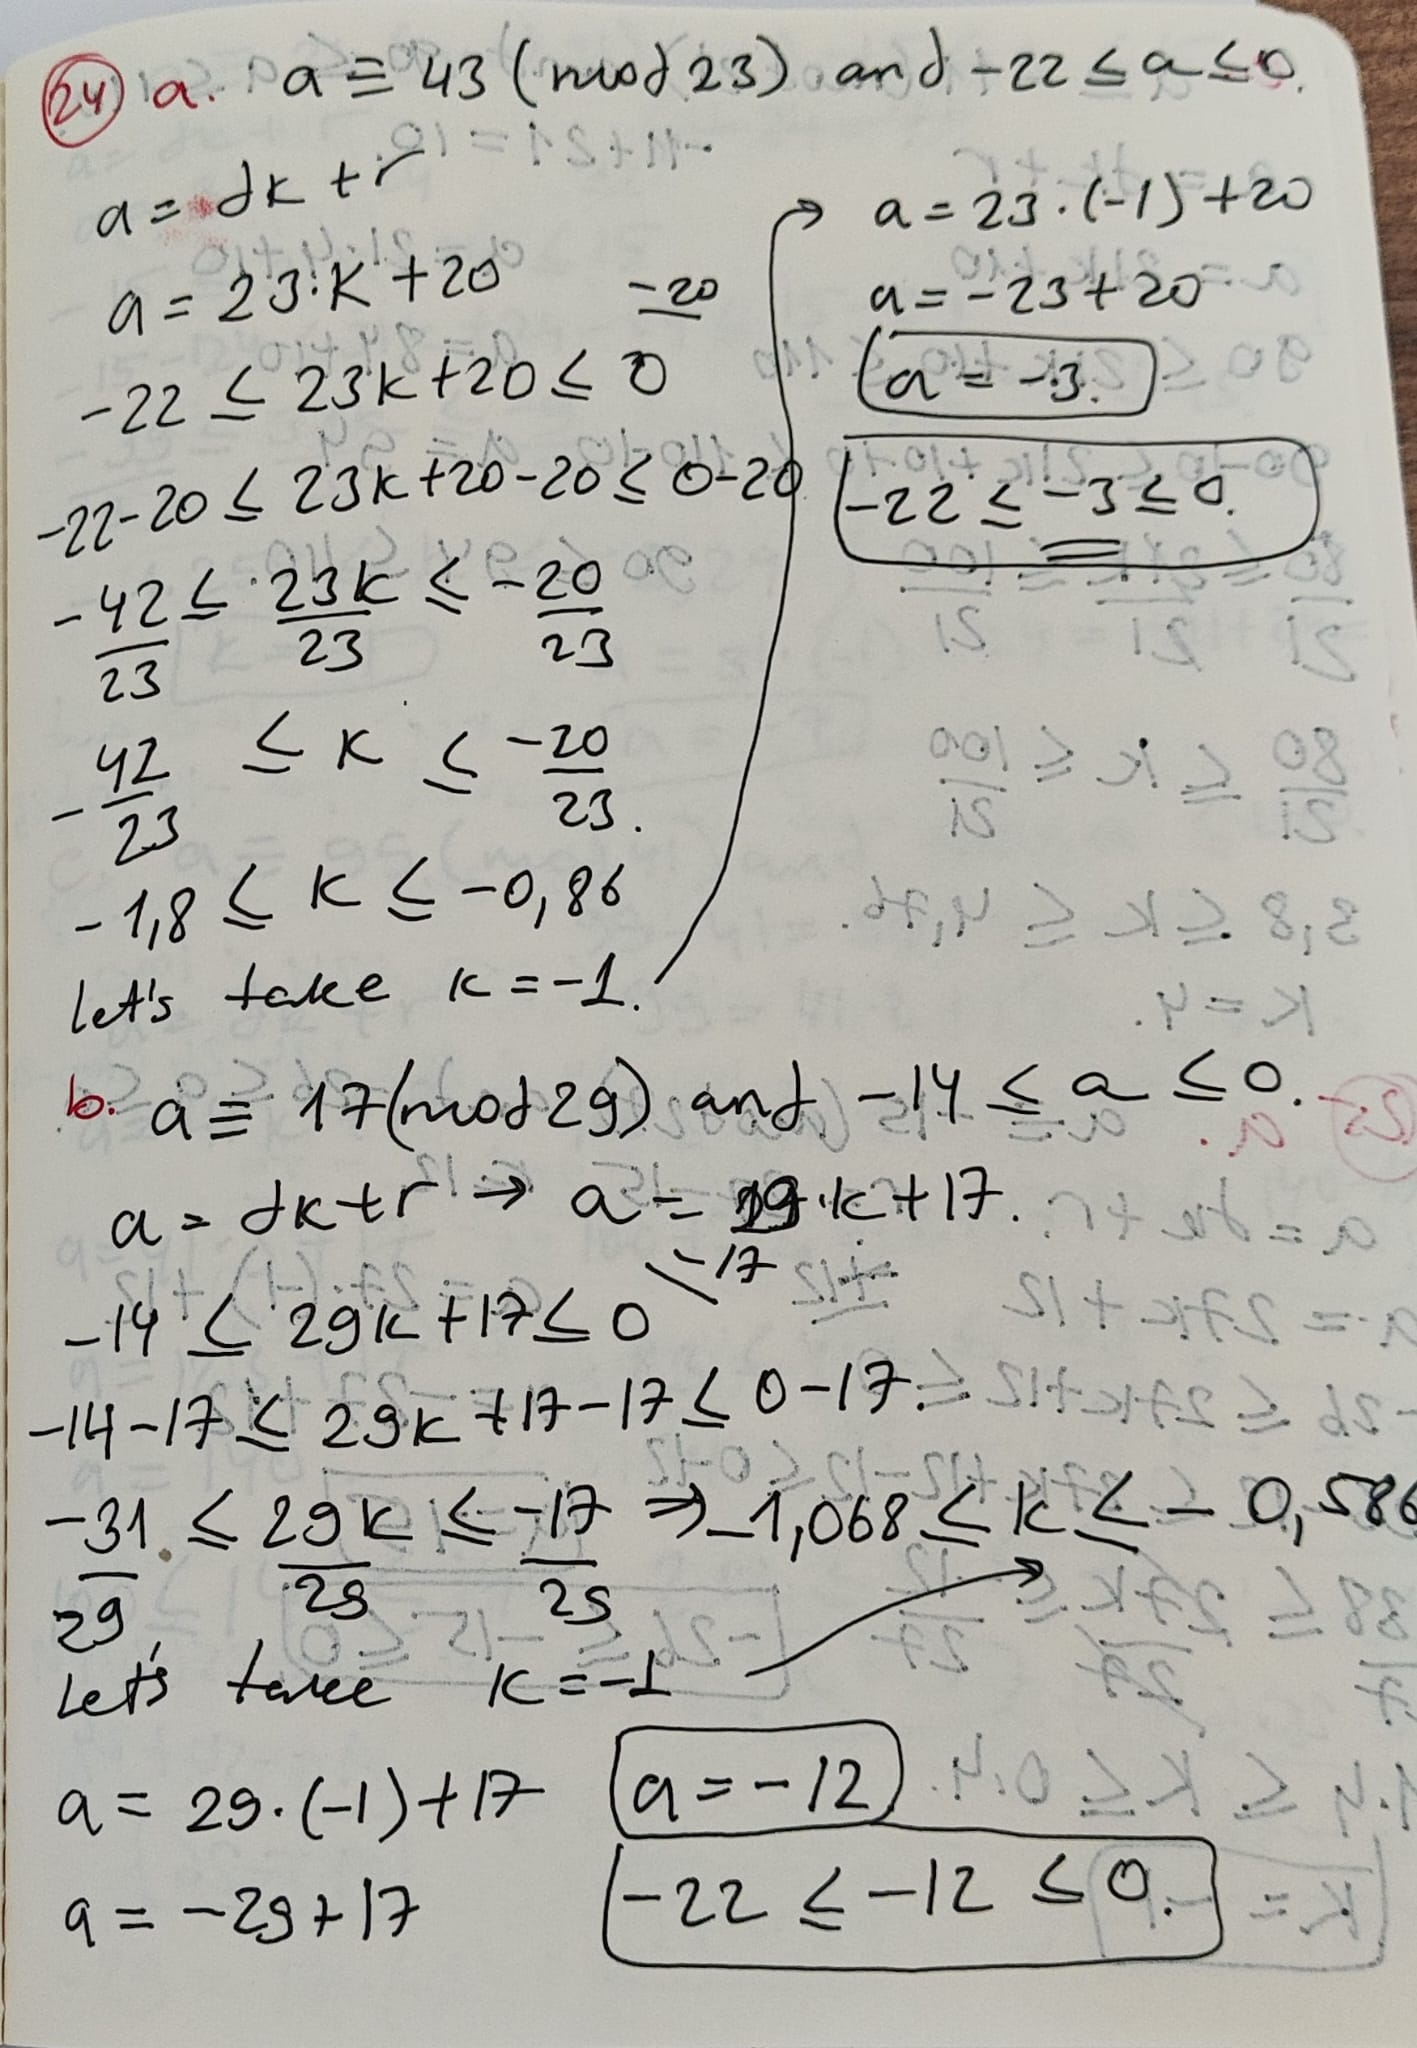 24 a. a ≡ 43 (mod 23) and -22 ≤ a ≤ 0.
a = dk + r
a = 23·k + 20 -20
-22 ≤ 23k + 20 ≤ 0
-22-20 ≤ 23k + 20 - 20 ≤ 0 - 20
-42/23 ≤ 23k/23 ≤ -20/23
-42/23 ≤ k ≤ -20/23.
-1,8 ≤ k ≤ -0,86
let's take k = -1.
→ a = 23·(-1) + 20
a = -23 + 20
a = -3.
-22 ≤ -3 ≤ 0.
b. a ≡ 17 (mod 29) and -14 ≤ a ≤ 0.
a = dk + r → a = 29·k + 17.
-14 ≤ 29k + 17 ≤ 0 \ -17
-14-17 ≤ 29k + 17 - 17 ≤ 0 - 17.
-31/29 ≤ 29k/29 ≤ -17/29 ⇒ -1,068 ≤ k ≤ -0,586
Let's take k = -1
a = 29·(-1) + 17
a = -29 + 17
a = -12
-22 ≤ -12 ≤ 0.